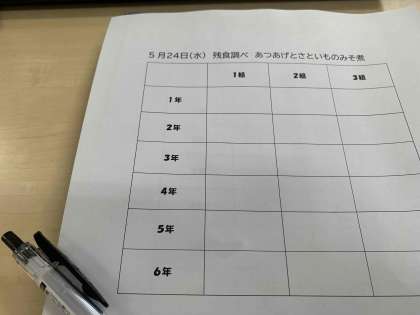 5月24日(水) 残食調べ あつあげとさといものみそ煮
1組 2組 3組
1年
2年
3年
4年
5年
6年